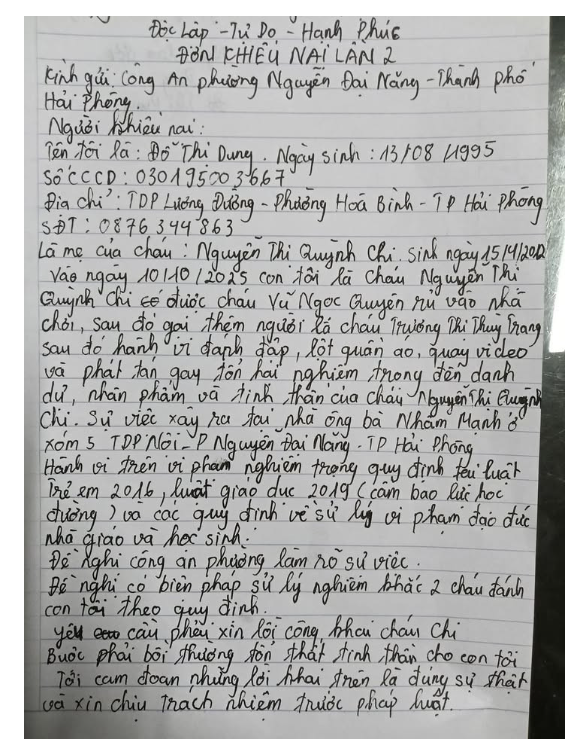 Độc Lập - Tự Do - Hạnh Phúc
ĐƠN KHIẾU NẠI LẦN 2
Kính gửi: Công An phường Nguyễn Đại Năng - Thành phố
Hải Phòng.
Người khiếu nại:
Tên tôi là: Đỗ Thị Dung. Ngày sinh: 13/08/1995
Số CCCD: 030195003667
Địa chỉ: TDP Lương Đường - Phường Hoà Bình - TP Hải Phòng
SĐT: 0876344863
Là mẹ của cháu: Nguyễn Thị Quỳnh Chi. sinh ngày 15/4/2012
Vào ngày 10/10/2025 con tôi là cháu Nguyễn Thị
Quỳnh Chi có được cháu Vũ Ngọc Quyên rủ vào nhà
chơi, sau đó gọi thêm người là cháu Trương Thị Thuỳ Trang
sau đó hành vi đánh đập, lột quần áo, quay video
và phát tán gây tổn hại nghiêm trọng đến danh
dự, nhân phẩm và tinh thần của cháu Nguyễn Thị Quỳnh
Chi. Sự việc xảy ra tại nhà ông bà Nhâm Mạnh ở
xóm 5 TDP Nội - P Nguyễn Đại Năng - TP Hải Phòng
Hành vi trên vi phạm nghiêm trọng quy định tại luật
Trẻ em 2016, luật giáo dục 2019 (cấm bạo lực học
đường) và các quy định về sử lý vi phạm đạo đức
nhà giáo và học sinh.
Đề nghị công an phường làm rõ sự việc.
Đề nghị có biện pháp sử lý nghiêm khắc 2 cháu đánh
con tôi theo quy định.
yêu cầu phải xin lỗi công khai cháu Chi
Buộc phải bồi thường tổn thất tinh thần cho con tôi
Tôi cam đoan những lời khai trên là đúng sự thật
và xin chịu trách nhiệm trước pháp luật.